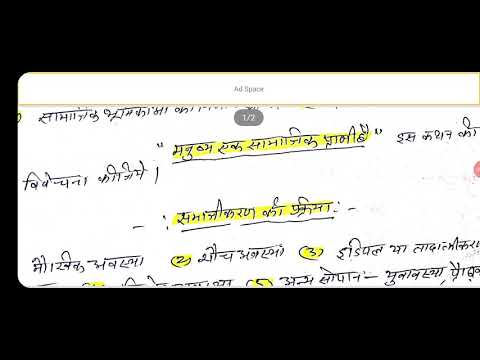 Ad Space
1/2
सामाजिक भूमिकाओं
"मनुष्य एक सामाजिक प्राणी है" इस कथन की
विवेचना कीजिये।
-: समाजीकरण की प्रक्रिया :-
मौखिक अवस्था (2) शौच अवस्था (3) इडिपल या तादात्मीकरण
(5) अन्य सोपान :- युवावस्था, प्रौढ़